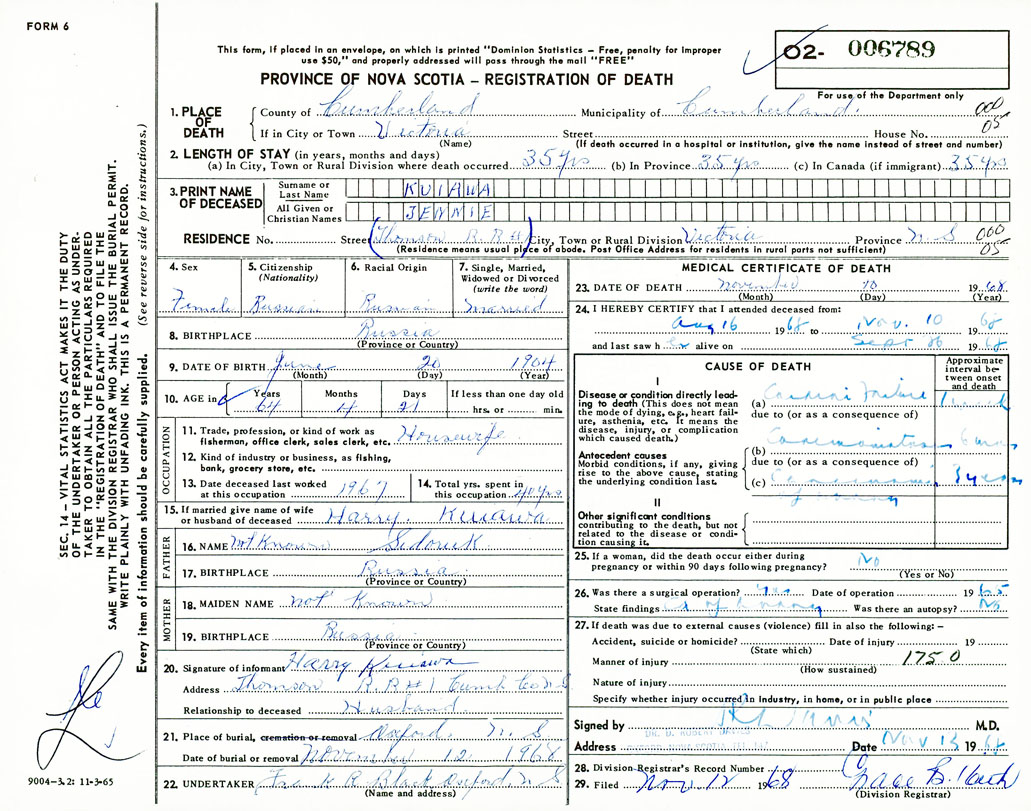 FORM 6
This form, if placed in an envelope, on which is printed "Dominion Statistics — Free, penalty for improper
use $50," and properly addressed will pass through the mail "FREE"
O2- 006789
PROVINCE OF NOVA SCOTIA – REGISTRATION OF DEATH
For use of the Department only
1. PLACE OF DEATH
County of Cumberland Municipality of Cumberland. 000
If in City or Town Victoria Street House No. 05
(Name) (If death occurred in a hospital or institution, give the name instead of street and number)
2. LENGTH OF STAY (in years, months and days)
(a) In City, Town or Rural Division where death occurred 35 yrs (b) In Province 35 yrs (c) In Canada (if immigrant) 35 yrs
3. PRINT NAME OF DECEASED
Surname or Last Name KUIAWA
All Given or Christian Names JENNIE
RESIDENCE No. Street (Thomson R.R#1) City, Town or Rural Division Victoria Province N.S 000
(Residence means usual place of abode. Post Office Address for residents in rural parts not sufficient) 05
4. Sex 5. Citizenship (Nationality) 6. Racial Origin 7. Single, Married, Widowed or Divorced (write the word)
Female Russian Russian Married
8. BIRTHPLACE Russia
(Province or Country)
9. DATE OF BIRTH June 20 1904
(Month) (Day) (Year)
10. AGE in Years Months Days If less than one day old
64 4 21 hrs. or min.
OCCUPATION
11. Trade, profession, or kind of work as Housewife
fisherman, office clerk, sales clerk, etc.
12. Kind of industry or business, as fishing,
bank, grocery store, etc.
13. Date deceased last worked at this occupation 1967 14. Total yrs. spent in this occupation 40 yrs
15. If married give name of wife or husband of deceased Harry. Kuiawa
FATHER
16. NAME Not Known Sidoruk
17. BIRTHPLACE Russia
(Province or Country)
MOTHER
18. MAIDEN NAME not Known
19. BIRTHPLACE Russia
(Province or Country)
20. Signature of informant Harry Kuiawa
Address Thomson R.R#1 Cumb Co N S
Relationship to deceased Husband
21. Place of burial, cremation or removal Oxford. N.S
Date of burial or removal November 12, 1968
22. UNDERTAKER Frank R Black Oxford N S
(Name and address)
MEDICAL CERTIFICATE OF DEATH
23. DATE OF DEATH November 10 1968
(Month) (Day) (Year)
24. I HEREBY CERTIFY that I attended deceased from:
Aug 16 1968 to Nov. 10 1968
and last saw her alive on Sept 26 1968
CAUSE OF DEATH
Approximate interval between onset and death
I
Disease or condition directly leading to death (This does not mean the mode of dying, e.g., heart failure, asthenia, etc. It means the disease, injury, or complication which caused death.)
(a) Cardiac Failure
due to (or as a consequence of)
Antecedent causes
Morbid conditions, if any, giving rise to the above cause, stating the underlying condition last.
(b) Carcinomatosis 6 mos
due to (or as a consequence of)
(c) Carcinoma 3 years
of
II
Other significant conditions contributing to the death, but not related to the disease or condition causing it.
25. If a woman, did the death occur either during
pregnancy or within 90 days following pregnancy? No
(Yes or No)
26. Was there a surgical operation? Yes Date of operation 1965
State findings Was there an autopsy? No
27. If death was due to external causes (violence) fill in also the following: –
Accident, suicide or homicide? Date of injury 19
(State which)
Manner of injury 175.0
(How sustained)
Nature of injury
Specify whether injury occurred in Industry, in home, or in public place
Signed by M.D.
Address Date Nov 13 1968
28. Division Registrar's Record Number
29. Filed Nov 12 1968
(Division Registrar)
SEC. 14 – VITAL STATISTICS ACT MAKES IT THE DUTY
OF THE UNDERTAKER OR PERSON ACTING AS UNDER-
TAKER TO OBTAIN ALL THE PARTICULARS REQUIRED
IN THE "REGISTRATION OF DEATH" AND TO FILE THE
SAME WITH THE DIVISION REGISTRAR WHO SHALL ISSUE THE BURIAL PERMIT.
WRITE PLAINLY WITH UNFADING INK. THIS IS A PERMANENT RECORD.
Every item of information should be carefully supplied. (See reverse side for instructions.)
9004-3.2: 11-3-65